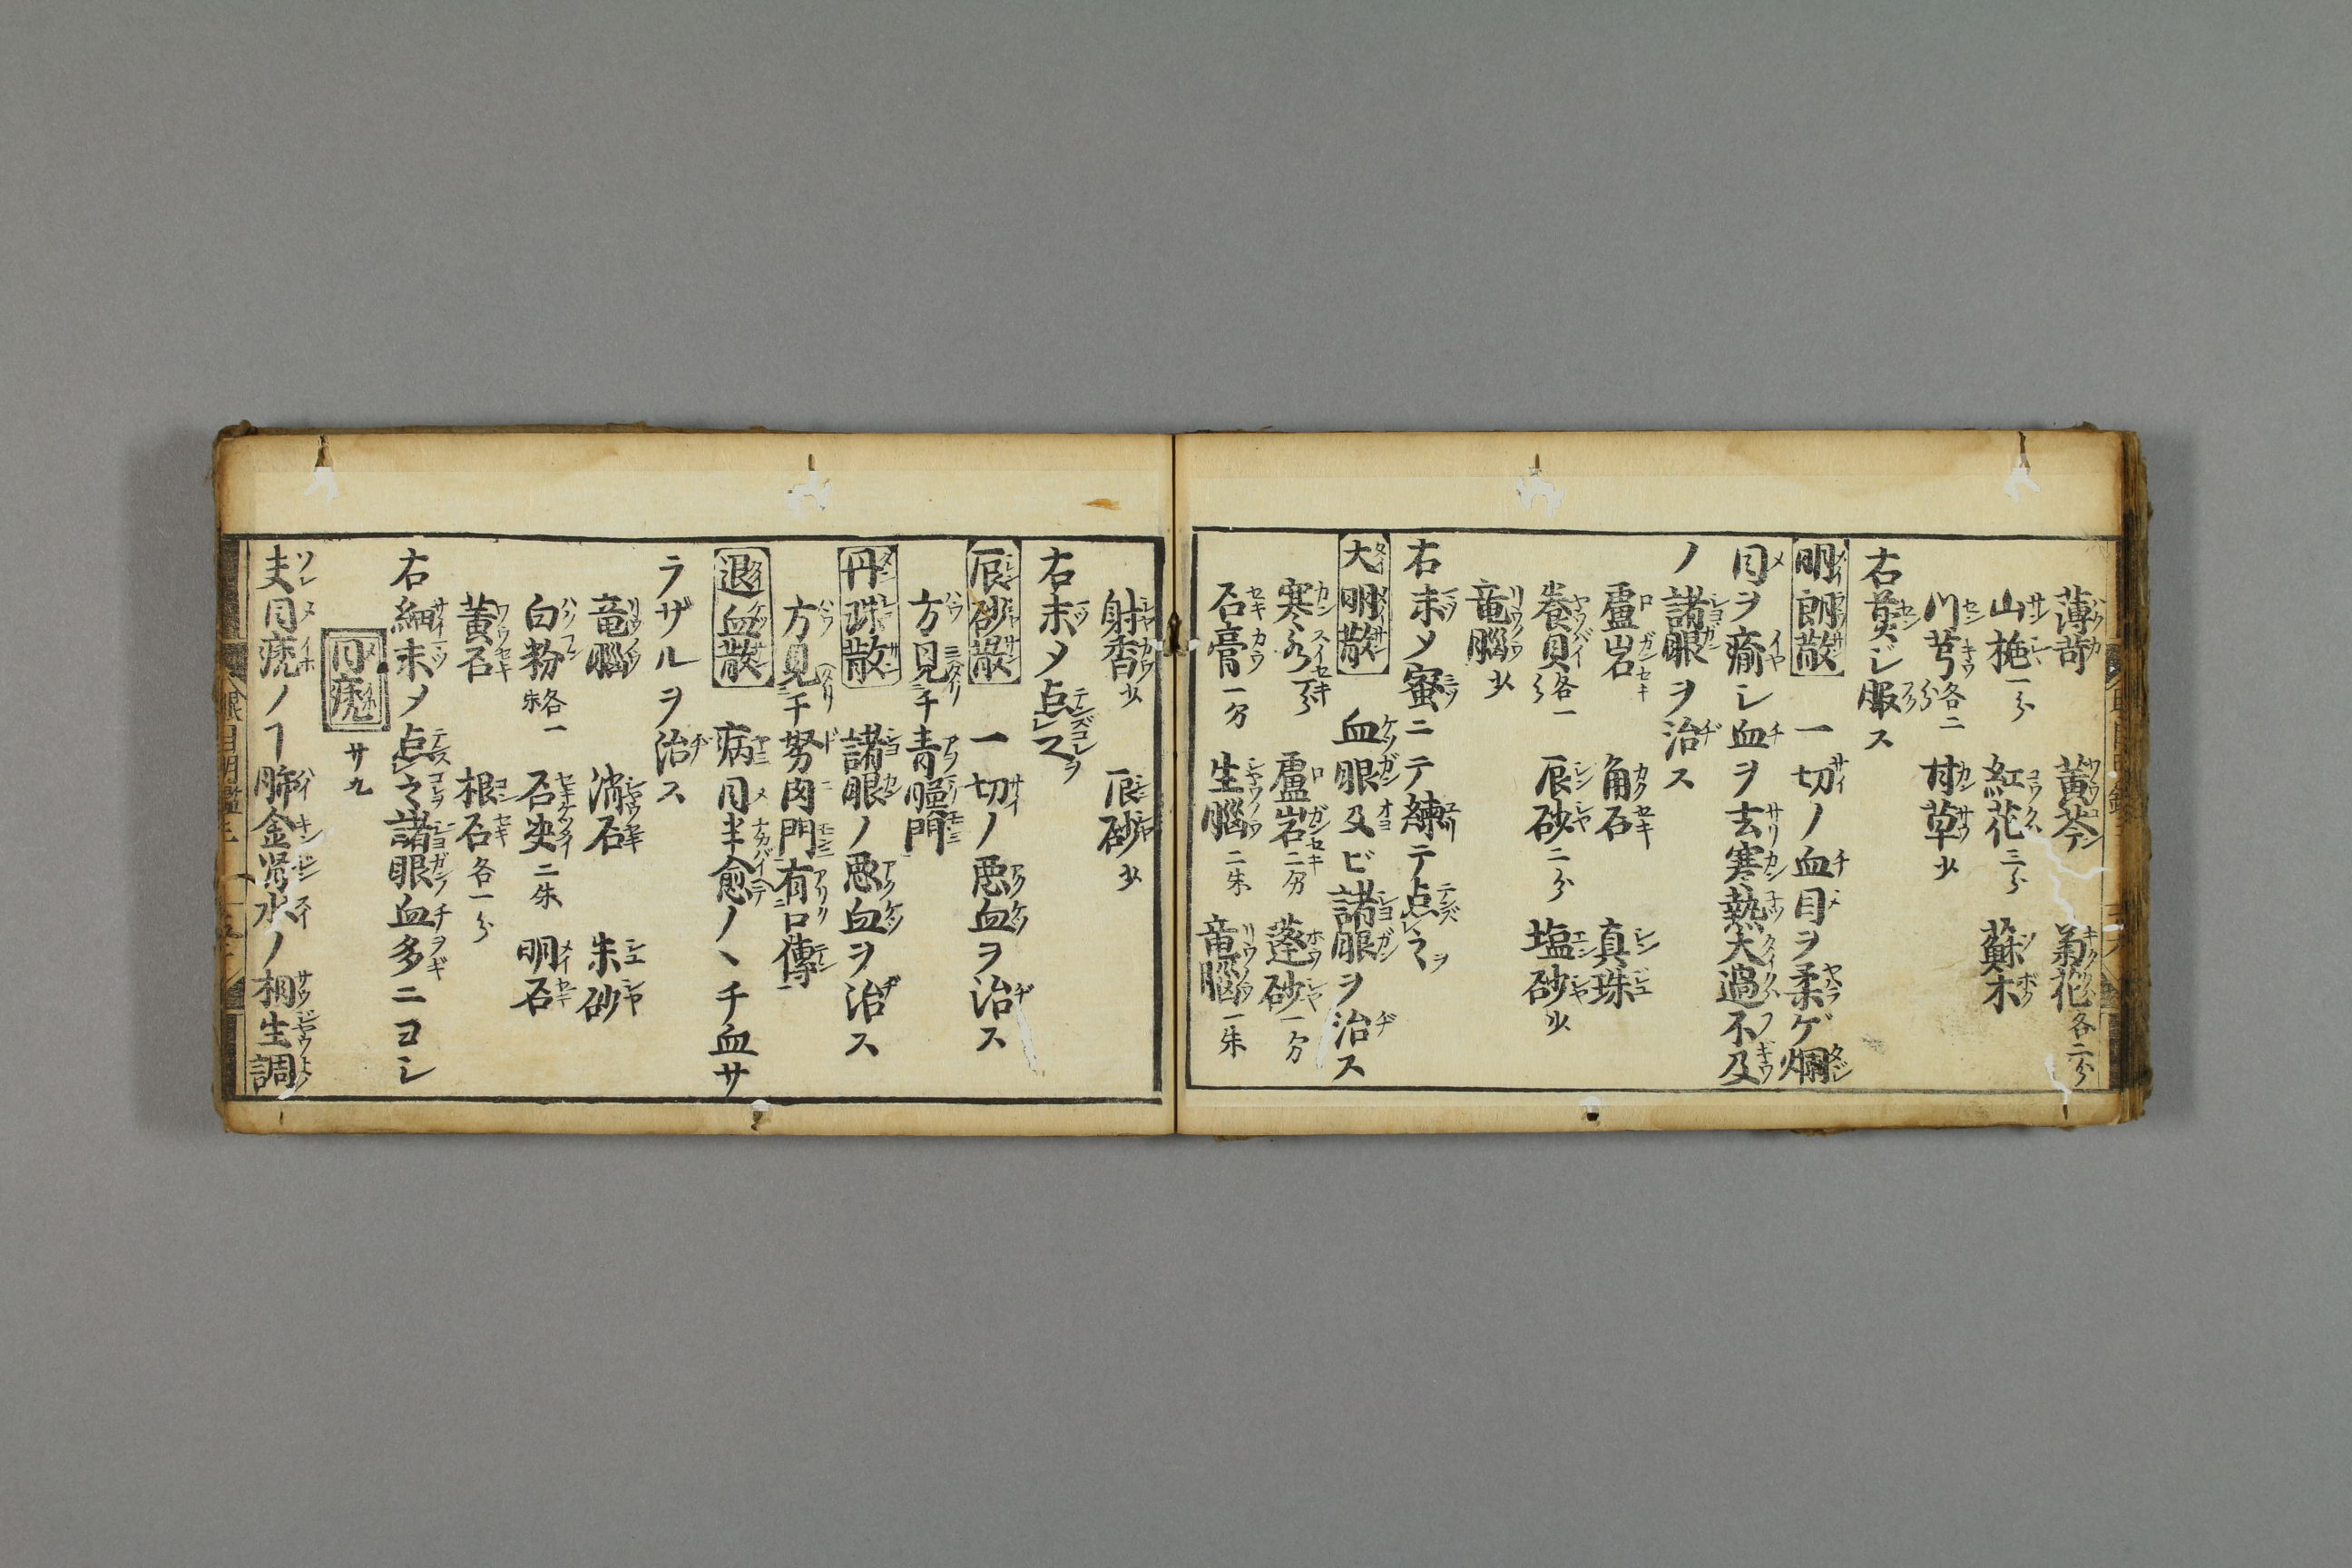 薄苛 黄芩 菊花各二分
山梔一分 紅花三分 蘇木
川芎各二分 甘草少
右煎ジ服ス
明朗散 一切ノ血目ヲ柔ゲ爛
目ヲ瘉シ血ヲ去寒熱大過不及
ノ諸眼ヲ治ス
盧岩 角石 真珠
養貝各一分 辰砂二分 塩砂少
竜腦少
右末メ蜜ニテ練テ点之ヲ
大明散 血眼及ビ諸眼ヲ治ス
寒水 盧岩二分 蓬砂一分
石膏一分 生腦二朱 竜腦一朱
射香少 辰砂少
右末メ点之ヲ
辰砂散 一切ノ悪血ヲ治ス
方見千青膃門
丹珠散 諸眼ノ悪血ヲ治ス
方見千努肉門有口傳
退血散 病目半愈ノヽチ血サ
ラザルヲ治ス
竜腦 消石 朱砂
白粉各一朱 石决二朱 明石
黄石 根石各一分
右細末メ点之諸眼血多ニヨシ
目疣 廿九
夫目疣ノ𪜈肺金肾水ノ相生調